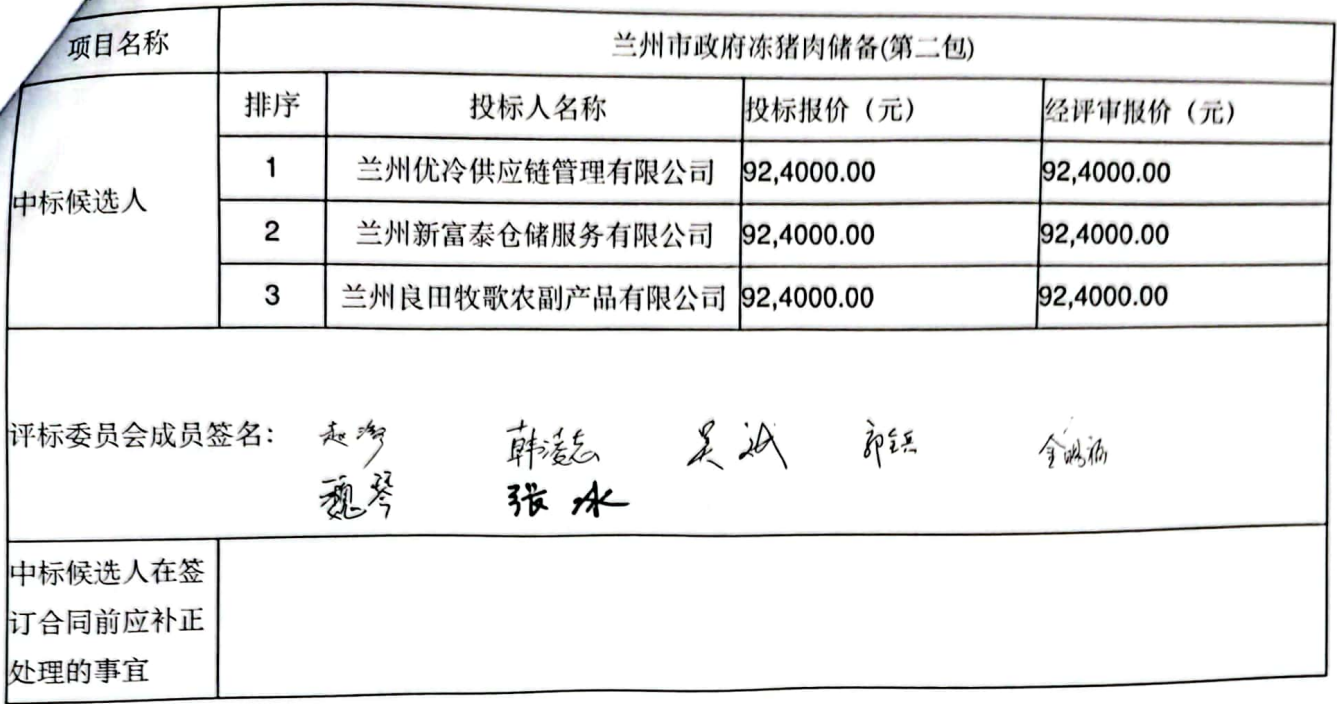 项目名称 兰州市政府冻猪肉储备(第二包)
中标候选人 排序 投标人名称 投标报价（元） 经评审报价（元）
1 兰州优冷供应链管理有限公司 92,4000.00 92,4000.00
2 兰州新富泰仓储服务有限公司 92,4000.00 92,4000.00
3 兰州良田牧歌农副产品有限公司 92,4000.00 92,4000.00
评标委员会成员签名： 韩凌志 吴斌
魏琴 张冰
中标候选人在签
订合同前应补正
处理的事宜